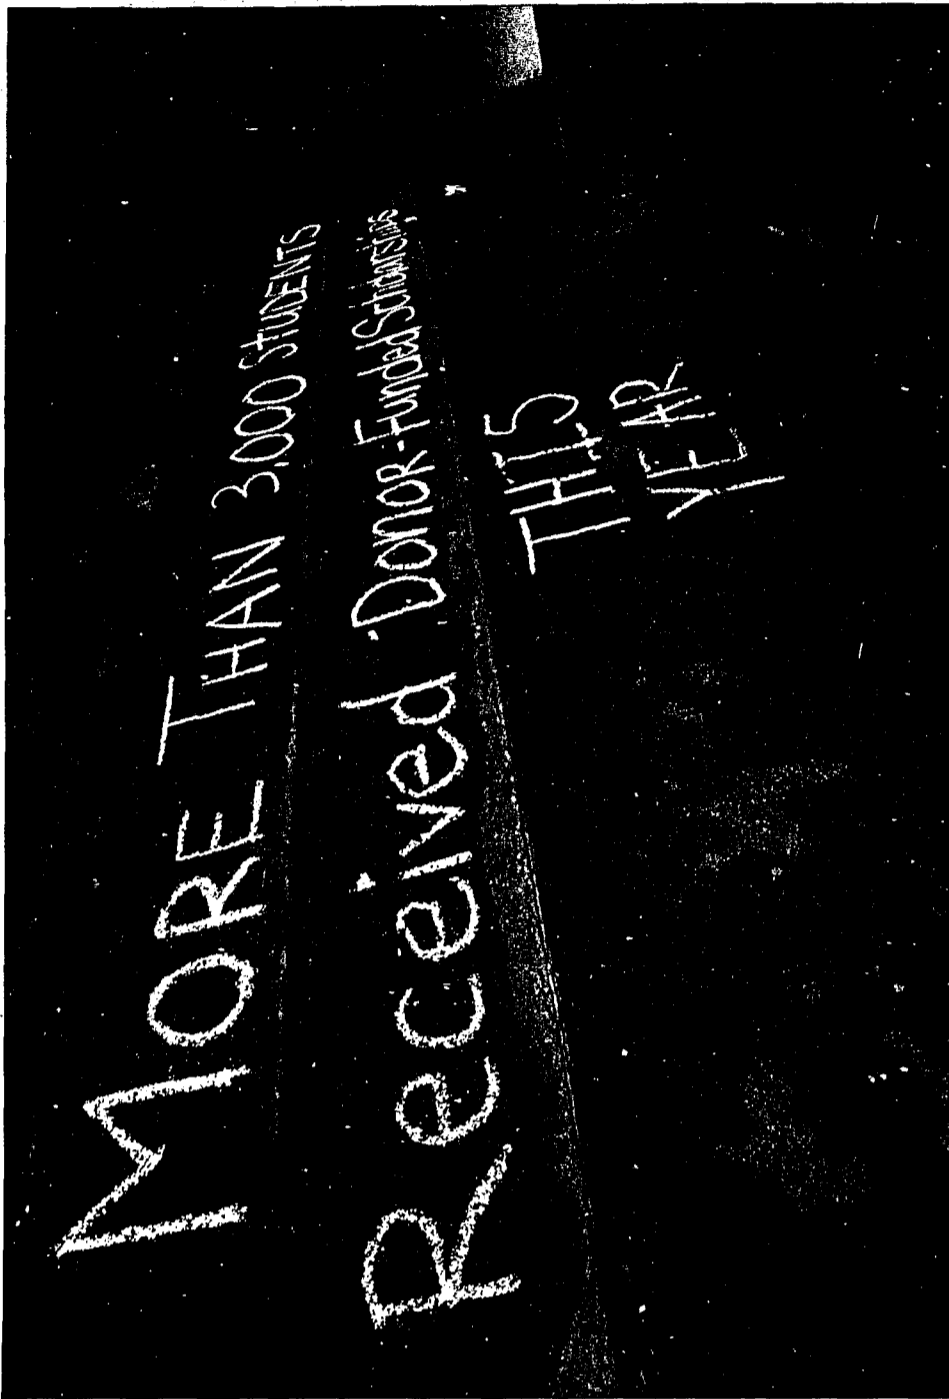 MORE THAN 3,000 STUDENTS
Received DONOR-Funded Scholarships
THIS
YEAR